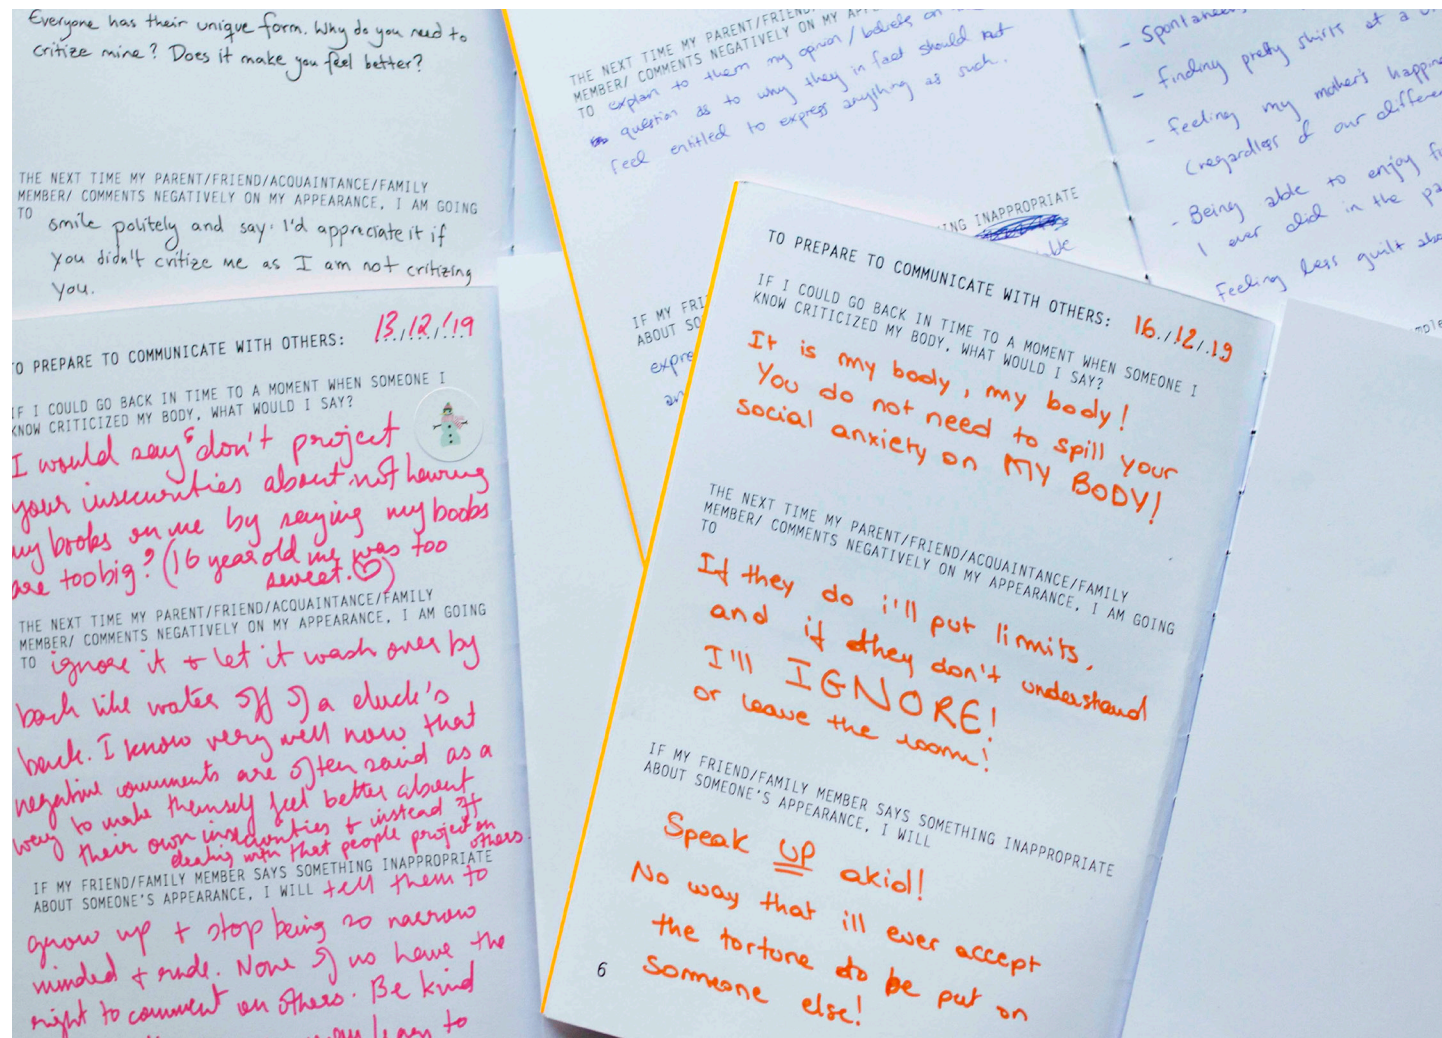 Everyone has their unique form. Why do you need to
critize mine? Does it make you feel better?
THE NEXT TIME MY PARENT/FRIEND/ACQUAINTANCE/FAMILY
MEMBER/ COMMENTS NEGATIVELY ON MY APPEARANCE, I AM GOING
TO smile politely and say: I'd appreciate it if
you didn't critize me as I am not critizing
you.
TO PREPARE TO COMMUNICATE WITH OTHERS: 13./12./'19
IF I COULD GO BACK IN TIME TO A MOMENT WHEN SOMEONE I
KNOW CRITICIZED MY BODY, WHAT WOULD I SAY?
I would say "don't project
your insecurities about not having
my boobs on me by saying my boobs
are too big? (16 year old me was too
sweet.♡)
THE NEXT TIME MY PARENT/FRIEND/ACQUAINTANCE/FAMILY
MEMBER/ COMMENTS NEGATIVELY ON MY APPEARANCE, I AM GOING
TO ignore it + let it wash over by
back like water off of a duck's
back. I know very well now that
negative comments are often said as a
way to make themself feel better about
their own insecurities + instead of
dealing with that people project on
others.
IF MY FRIEND/FAMILY MEMBER SAYS SOMETHING INAPPROPRIATE
ABOUT SOMEONE'S APPEARANCE, I WILL tell them to
grow up + stop being so narrow
minded + rude. None of us have the
right to comment on others. Be kind
learn to
THE NEXT TIME MY PARENT/FRIEND/
MEMBER/ COMMENTS NEGATIVELY ON MY
TO explain to them my opinion / beliefs on
question as to why they in fact should not
feel entitled to express anything as such.
ING INAPPROPRIATE
IF MY FRI
ABOUT SO
expre
an
- Spontaneo
- finding pretty shirts at a
- feeling my mother's happin
(regardless of our differen
- Being able to enjoy
I ever did in the pa
Feeling less guilt abo
TO PREPARE TO COMMUNICATE WITH OTHERS: 16./12/.19
IF I COULD GO BACK IN TIME TO A MOMENT WHEN SOMEONE I
KNOW CRITICIZED MY BODY, WHAT WOULD I SAY?
It is my body, my body!
You do not need to spill your
social anxiety on MY BODY!
THE NEXT TIME MY PARENT/FRIEND/ACQUAINTANCE/FAMILY
MEMBER/ COMMENTS NEGATIVELY ON MY APPEARANCE, I AM GOING
TO
If they do i'll put limits,
and if they don't understand
I'll IGNORE!
or leave the room!
IF MY FRIEND/FAMILY MEMBER SAYS SOMETHING INAPPROPRIATE
ABOUT SOMEONE'S APPEARANCE, I WILL
Speak UP akid!
No way that ill ever accept
the torture to be put on
someone else!
6